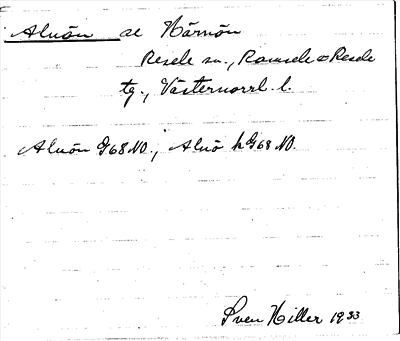 Alnön al Härnön
Resele sn., Ramsele o Resele
tg., Västernorrl. l.
Alnön G68 NO., Alnö h G68 NO.
Sven Hiller 1933